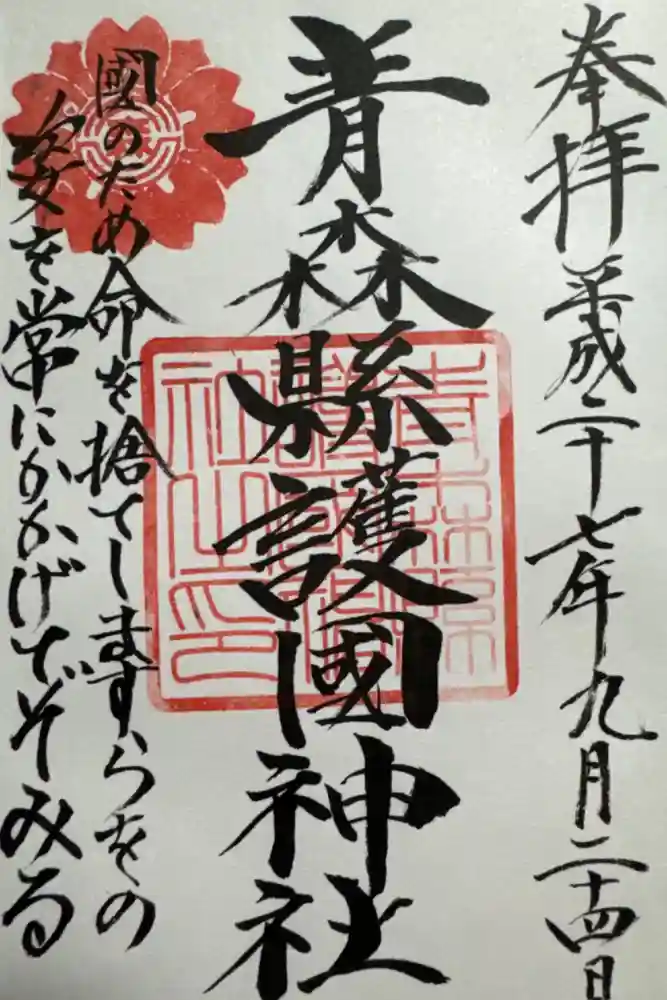 奉拝 平成二十七年九月二十四日
青森縣護國神社
青森縣護國神社之印
國のため命を捨てしますらをの
姿を常にかかげてぞみる